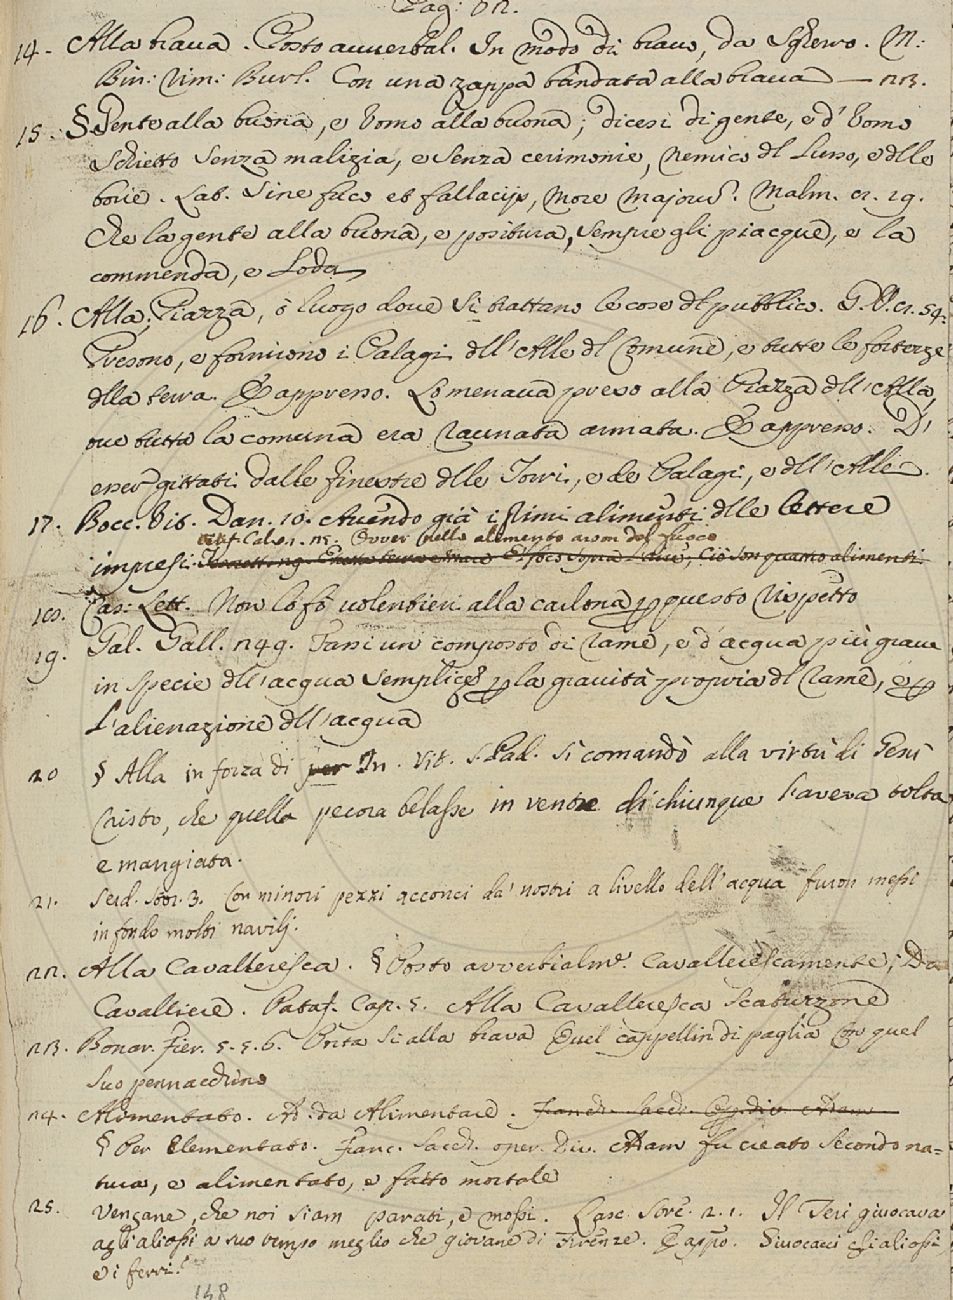 Pag: 82.
14. Alla brava. Posto avverbial. In modo di bravo, da Sgherro. M:
Bin: Rim: Burl. Con una zappa bandata alla brava — 23.
15. § Gente alla buona, e Vomo alla buona; dicesi di gente, e d' Vomo
Schietto senza malizia, e senza cerimonie, nemico dl Lusso, e dlle
borie. Lat. Sine fuco et fallacijs, more majorũ. Malm. c. 19.
Che la gente alla buona, e positiva, sempre gli piacque, e la
commenda, e Loda
16. Alla; Piazza, ò luogo dove si trattano le cose dl pubblico. G. V. 54.
Presono, e fornirono i Palagi dll' Alle dl Comune, e tutte le fortezze
dlla terra. E appresso. Lo menava preso alla Piazza dll' Alla,
ove tutta la comuna era raunata armata. E appresso. D'
esser gittati dalle finestre dlle Torri, e de Palagi, e dll' Alle
17. Bocc. Vit. Dan. 10. Avendo già i primi alimenti dlle lettere
Cal. 1. 15. Ovver nello alimento arom del fuoco
impresi.
18. Cas: Lett. Non lo fò volentieri alla carlona questo rispetto
19. Gal. Gall. 249. Fassi un composto di rame, e d'acqua più grave
in specie dll'acqua semplice la gravità propria dl rame, e
l'alienazione dll'acqua
20 § Alla in forza di per In. Vit. S. Pad. Si comandò alla virtù di Gesù
Cristo, che quella pecora belasse in ventre di chiunque l'aveva tolta
e mangiata.
21. Serd. Stor. 3. Con minori pezzi acconci da' nostri a livello dell'acqua furon messi
in fondo molti navilj.
22. Alla Cavalleresca. § Posto avverbialmẽ. Cavallerescamente; Da
Cavalliere. Pataf. Cap. 5. Alla Cavalleresca Scaturzone
23. Bonar. Fier. 5. 5. 6. Unita si alla brava Quel cappellin di paglia Con quel
suo pennacchino
24. Alimentato. Ad. da Alimentare. Franc. Sacch. Op. div. Adam
§ Per Elementato. Franc. Sacch. oper. Div. Adam fu creato secondo na=
tura, e alimentato, e fatto mortale
25. Vengane, che noi siam parati, e mossi. Lasc. Sore. 2. 1. Il Teri giuocava
agli aliossi a suo tempo meglio che giovane di Firenze. E appo. Giuocacci gli aliossi
e i ferri.
148